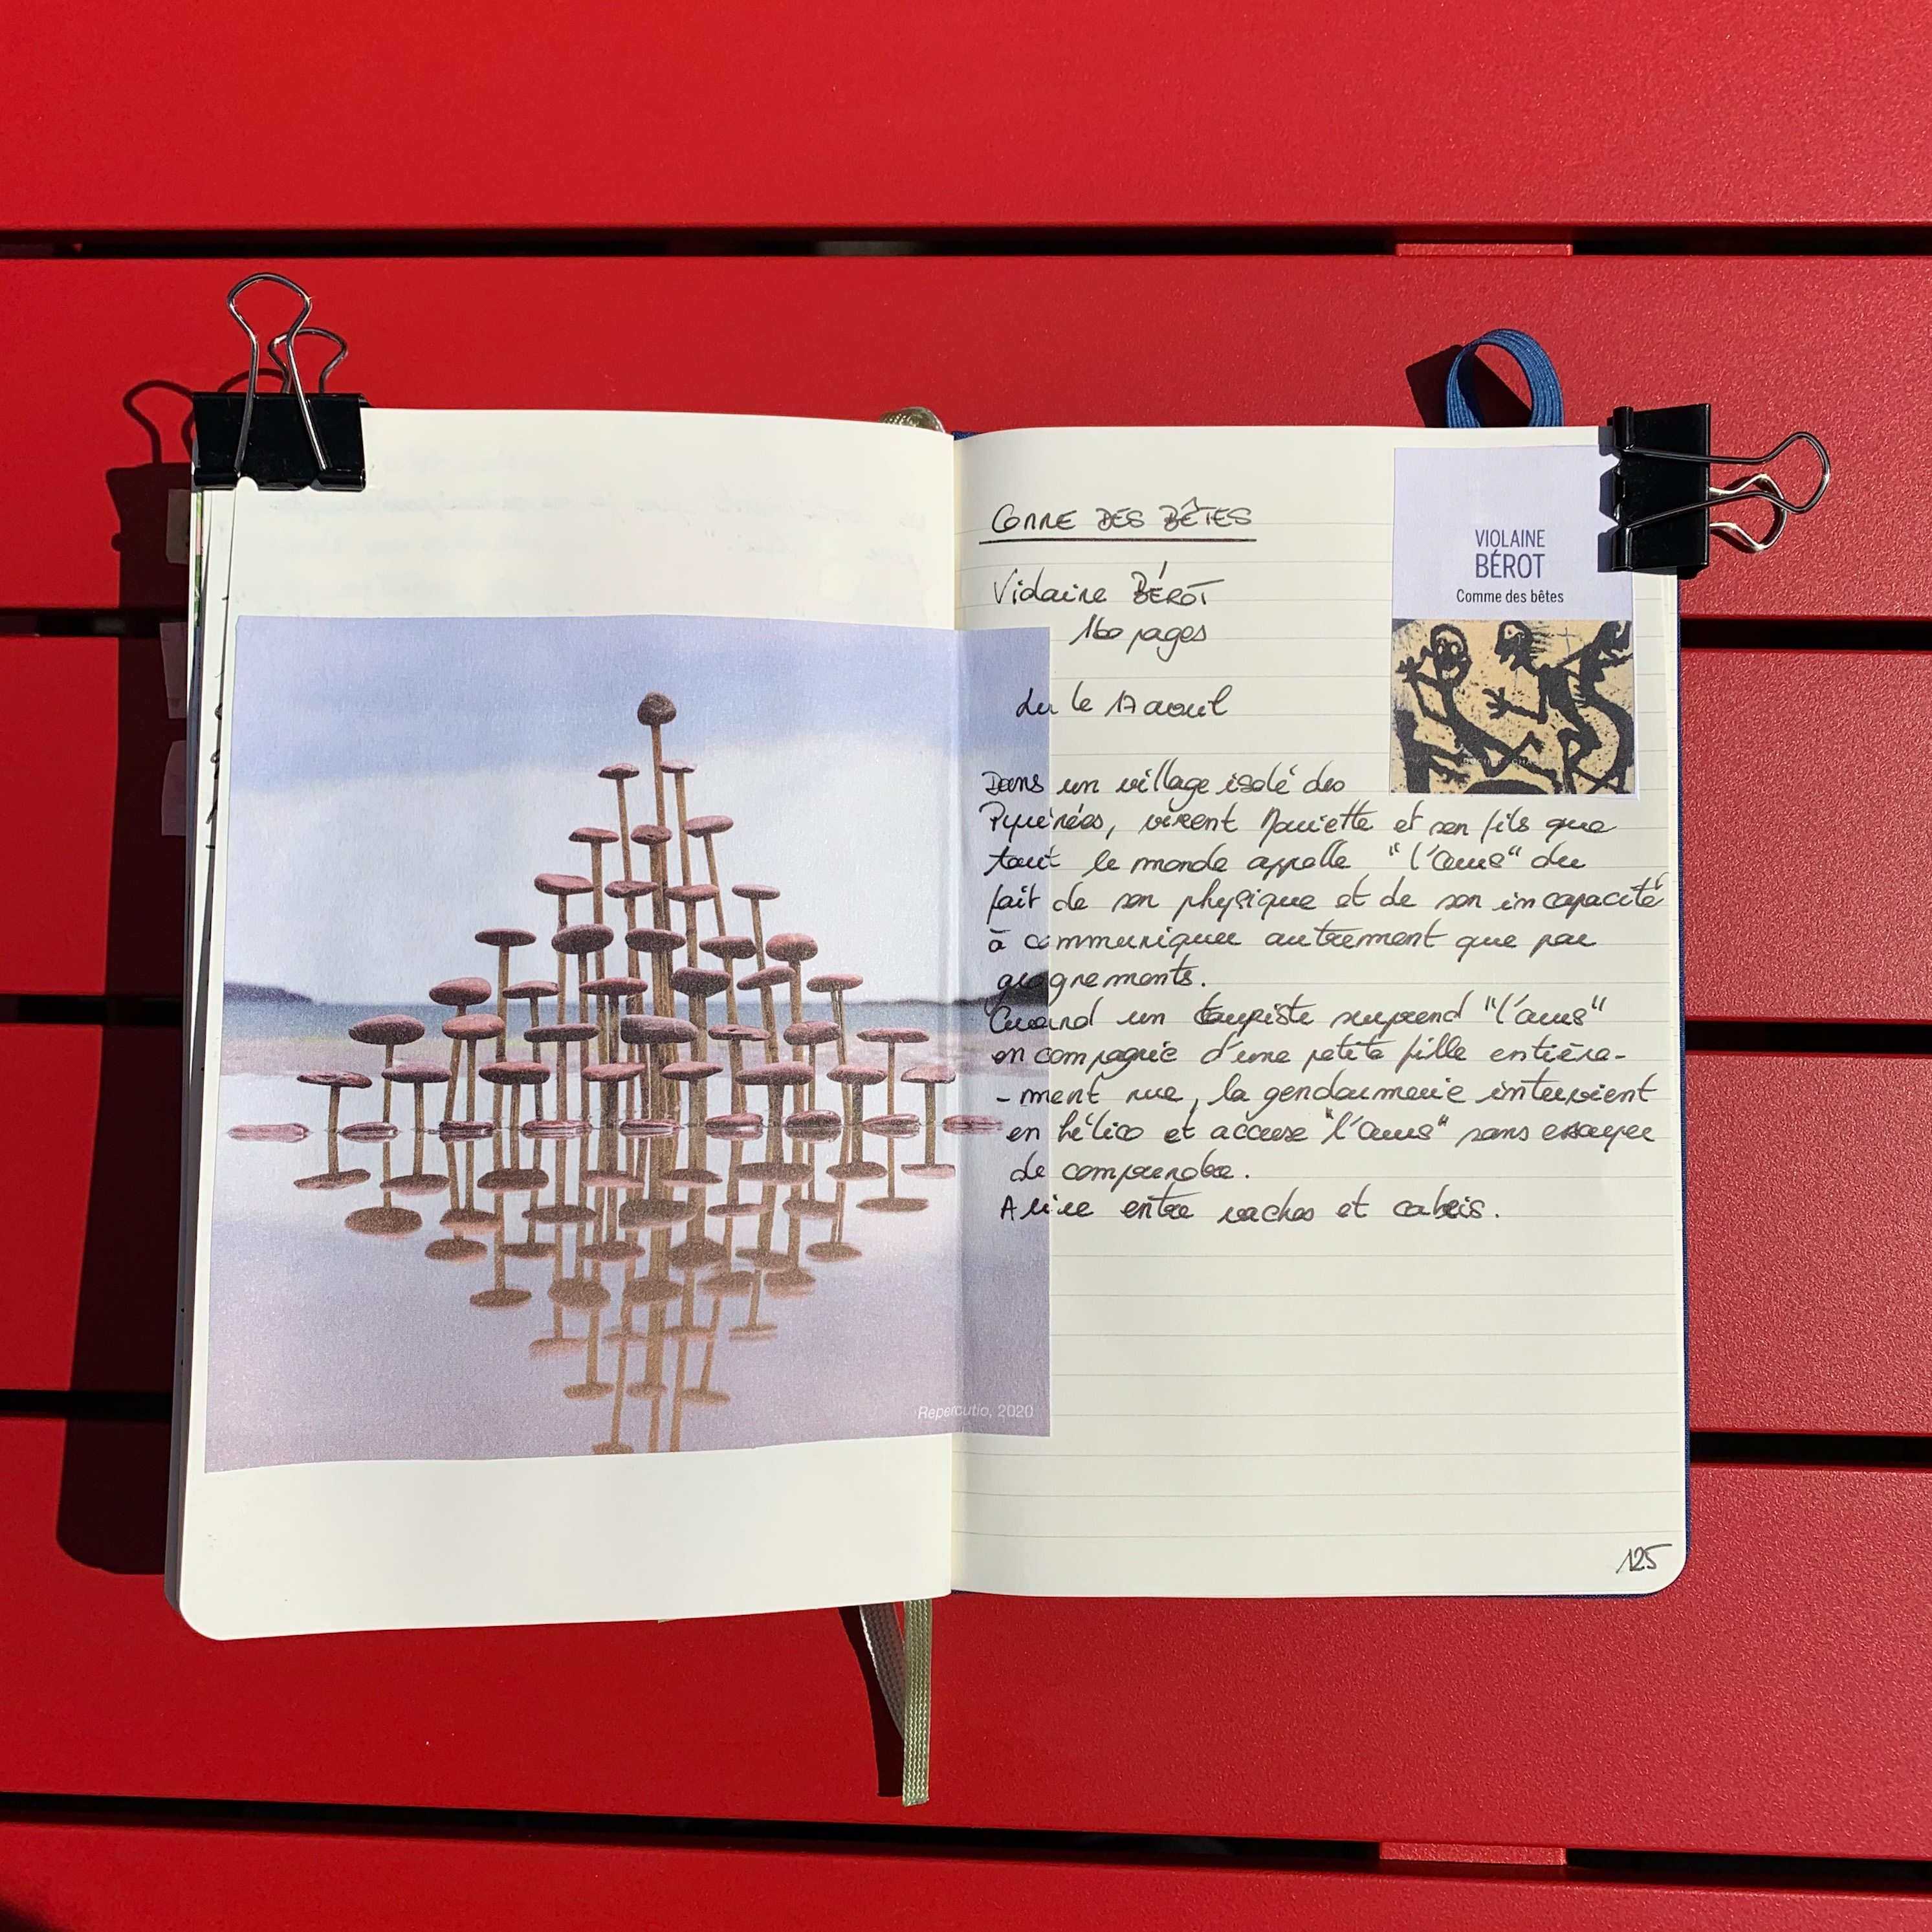 Repercutio, 2020
COMME DES BÊTES
Violaine BÉROT
160 pages
lu le 17 aout
VIOLAINE
BÉROT
Comme des bêtes
Dans un village isolé des
Pyrénées, vivent Mariette et son fils que
tout le monde appelle "l'ours" du
fait de son physique et de son incapacité
à communiquer autrement que par
grognements.
Quand un touriste surprend "l'ours"
en compagnie d'une petite fille entière-
-ment nue, la gendarmerie intervient
en hélico et accuse "l'ours" sans essayer
de comprendre.
A lire entre vaches et cabris.
125